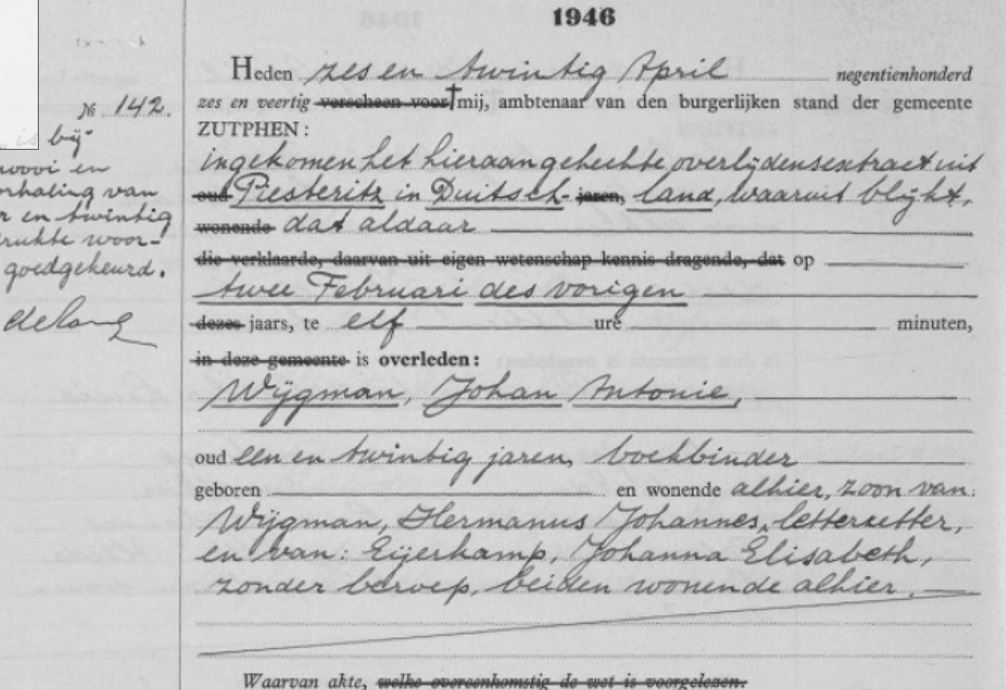 1946
Heden zes en twintig April negentienhonderd
№ 142.
zes en veertig verscheen voor † mij, ambtenaar van den burgerlijken stand der gemeente
ZUTPHEN:
is bij
ingekomen het hieraan gehechte overlijdensextract uit
en
oud Piesteritz in Duitsch- jaren, land, waaruit blijkt,
rhaling van
wonende dat aldaar
r en twintig
rukte woor-
die verklaarde, daarvan uit eigen wetenschap kennis dragende, dat op
goedgekeurd.
twee Februari des vorigen
dezes jaars, te elf ure minuten,
in deze gemeente is overleden:
Wijgman, Johan Antonie,
oud een en twintig jaren, boekbinder
geboren en wonende alhier, zoon van:
Wijgman, Hermanus Johannes, letterzetter,
en van: Eijerkamp, Johanna Elisabeth,
zonder beroep, beiden wonende alhier.
Waarvan akte, welke overeenkomstig de wet is voorgelezen.